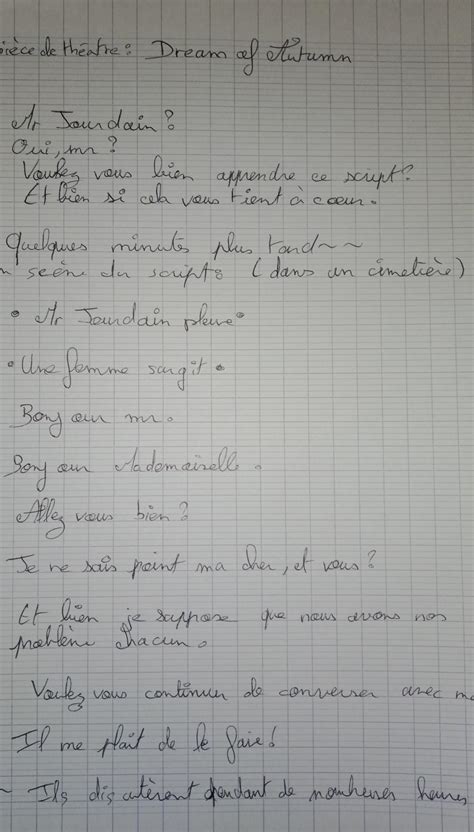 pièce de théatre: Dream of Autumn
Mr Jourdain?
Oui, mr?
Voulez vous bien apprendre ce script?
Et bien si cela vous tient à coeur.
Quelques minutes plus tard~~
scène du scripts (dans un cimetière)
• Mr Jourdain pleure•
• Une femme surgit •
Bonjour mr.
Bonjour Mademoiselle.
Allez vous bien?
Je ne sais point ma cher, et vous?
Et bien je suppose que nous avons nos
problème chacun.
Voulez vous continuer de converser avec
Il me plaît de le faire!
~ Ils discutèrent pendant de nombreuses heures